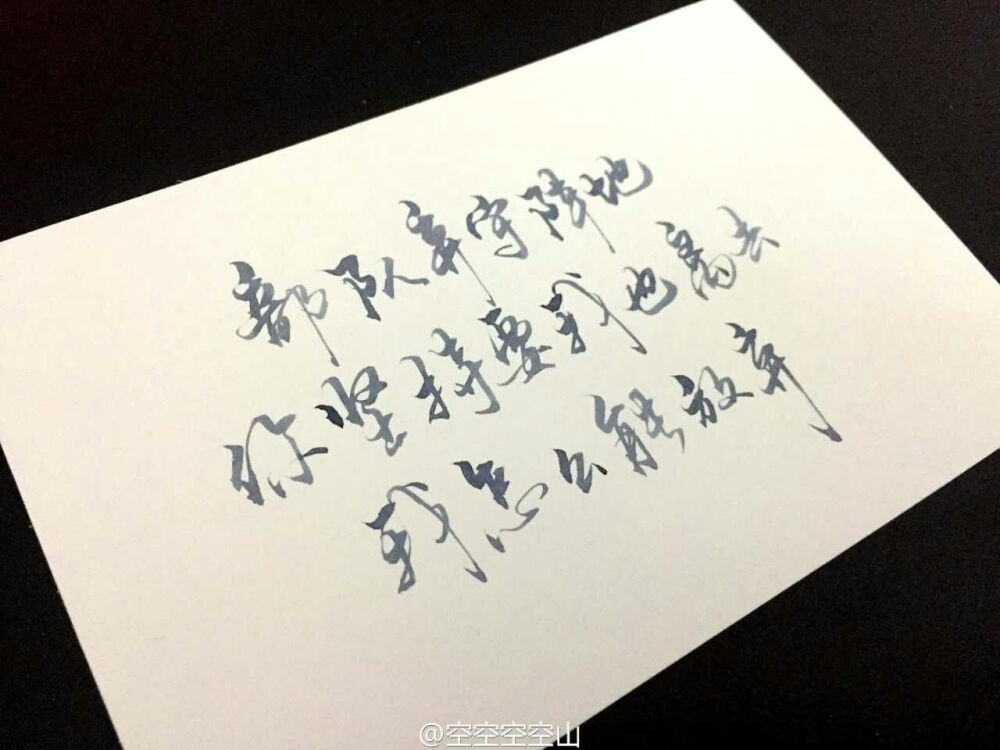 部队弃守阵地
你坚持要我也离去
我怎么能放弃
@空空空空山